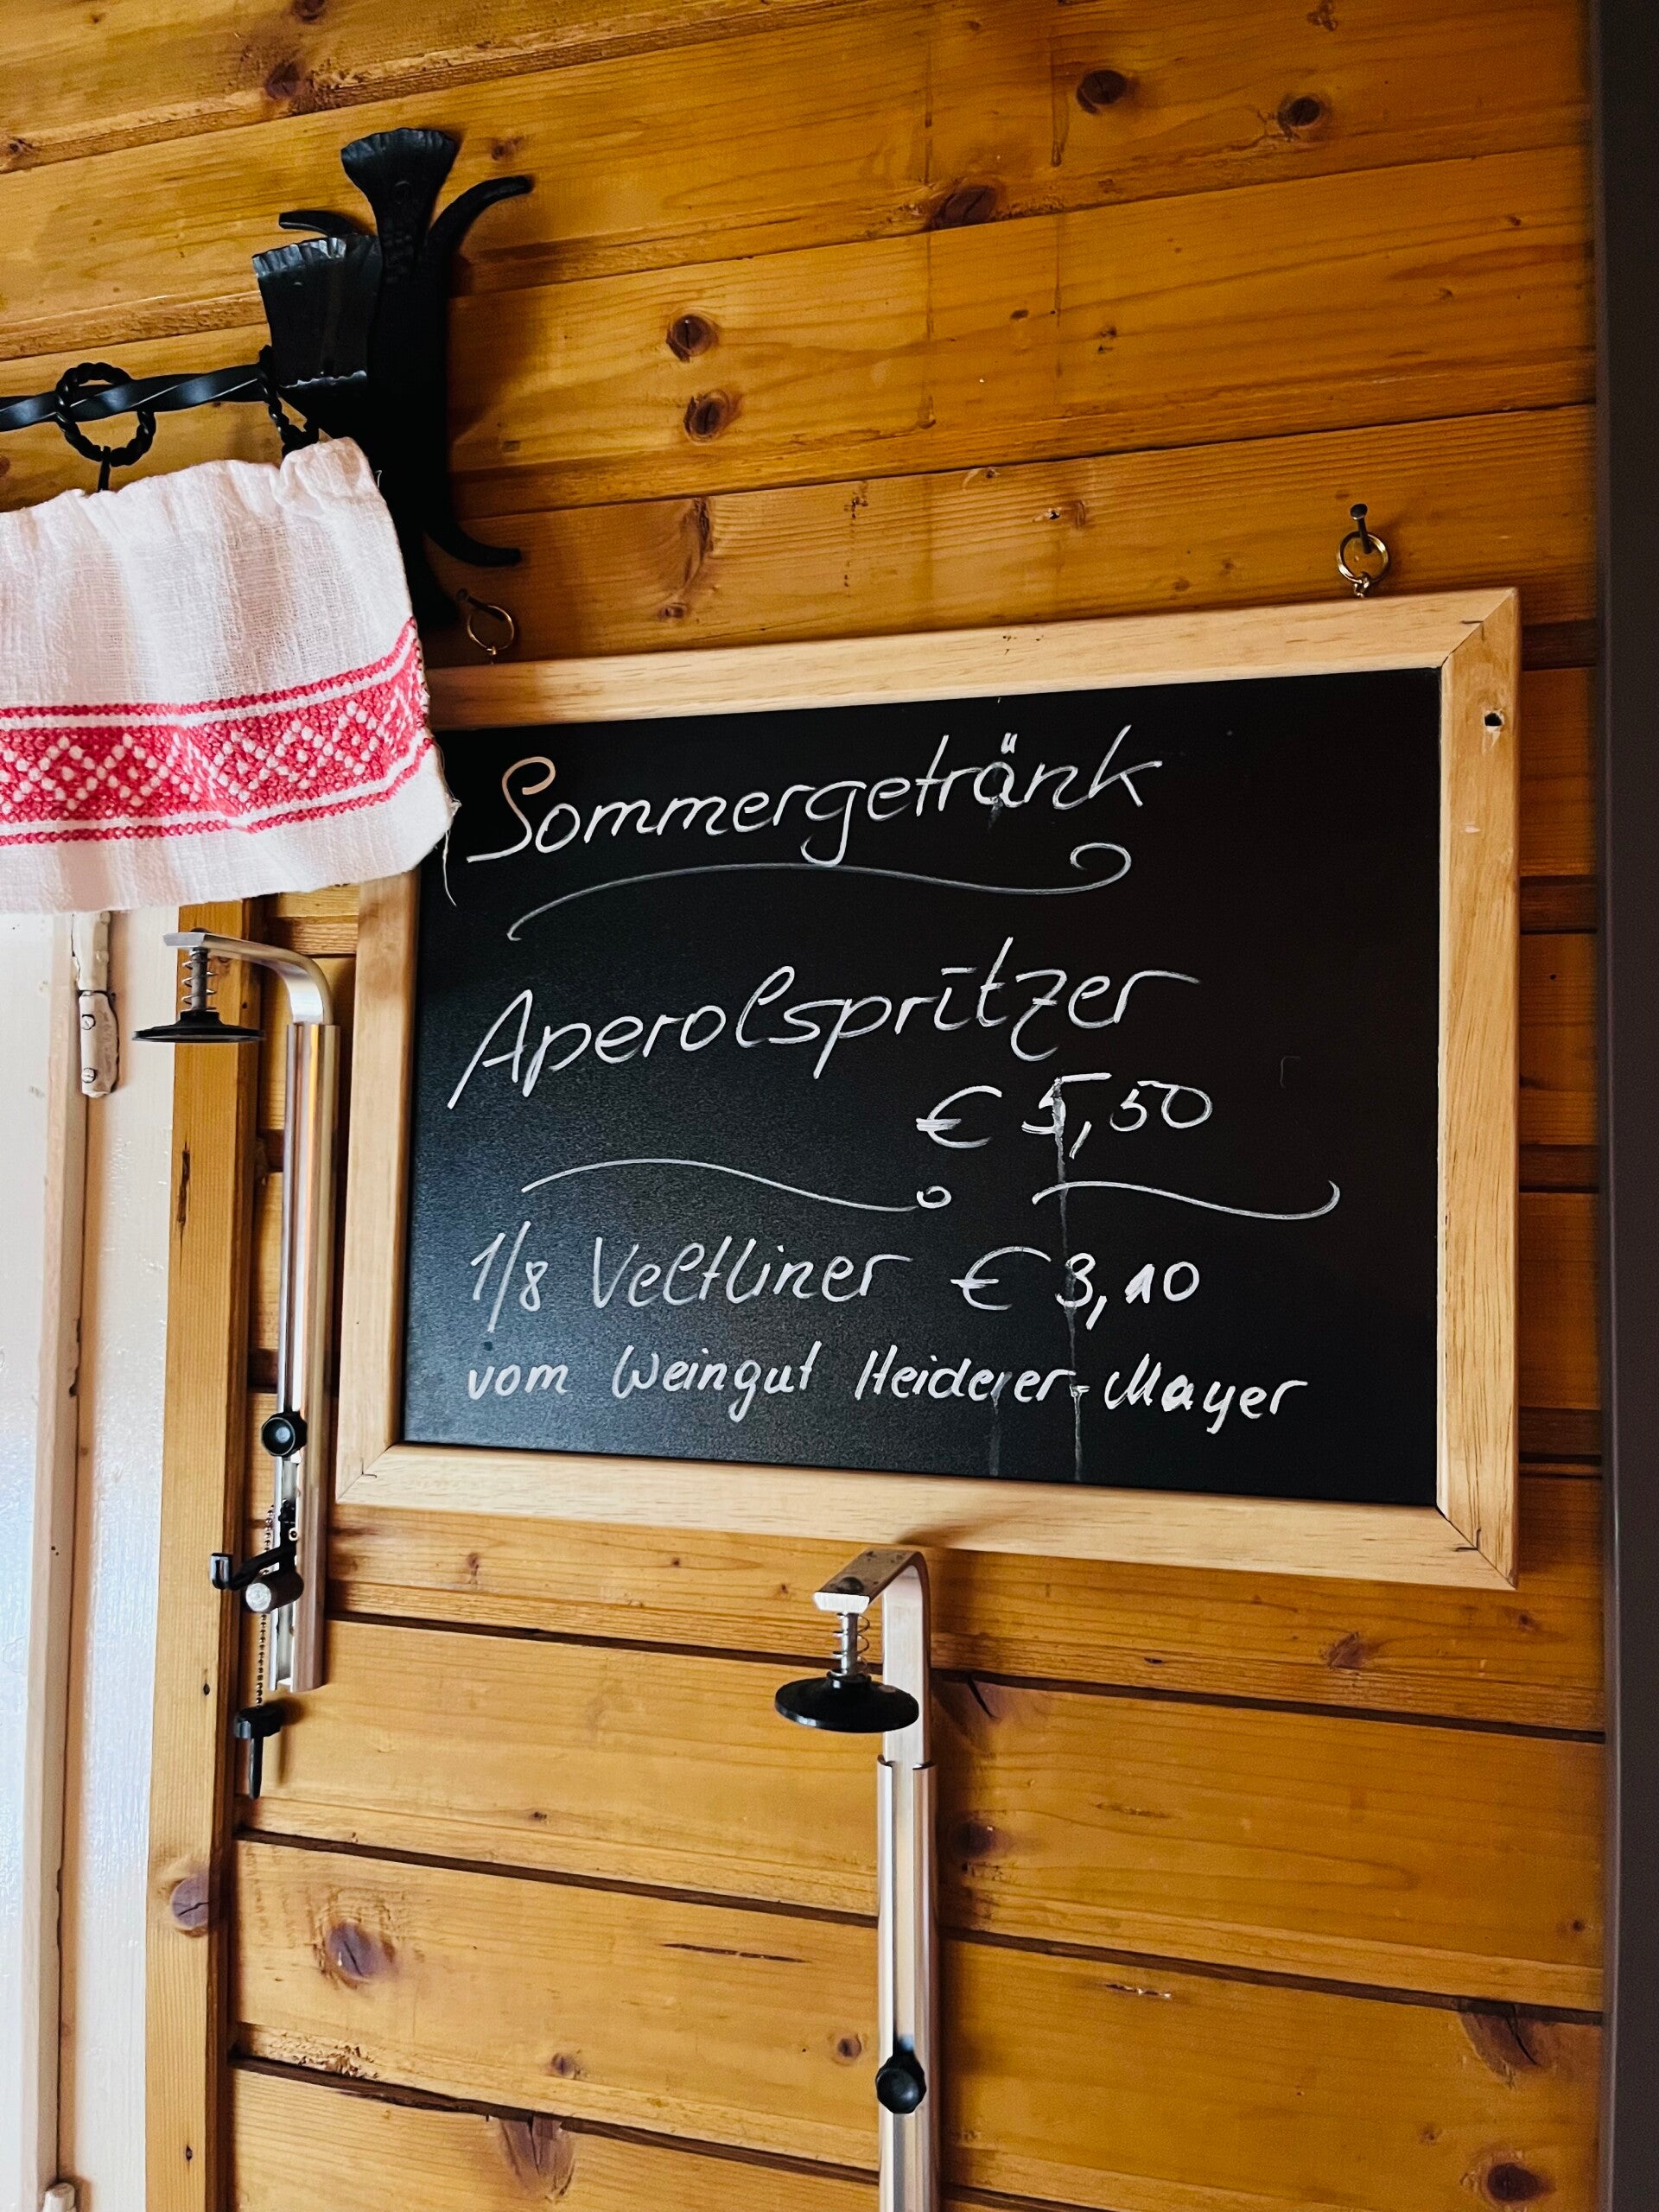 Sommergetränk
Aperolspritzer
€ 5,50
1/8 Veltliner € 3,10
vom Weingut Heiderer-Mayer